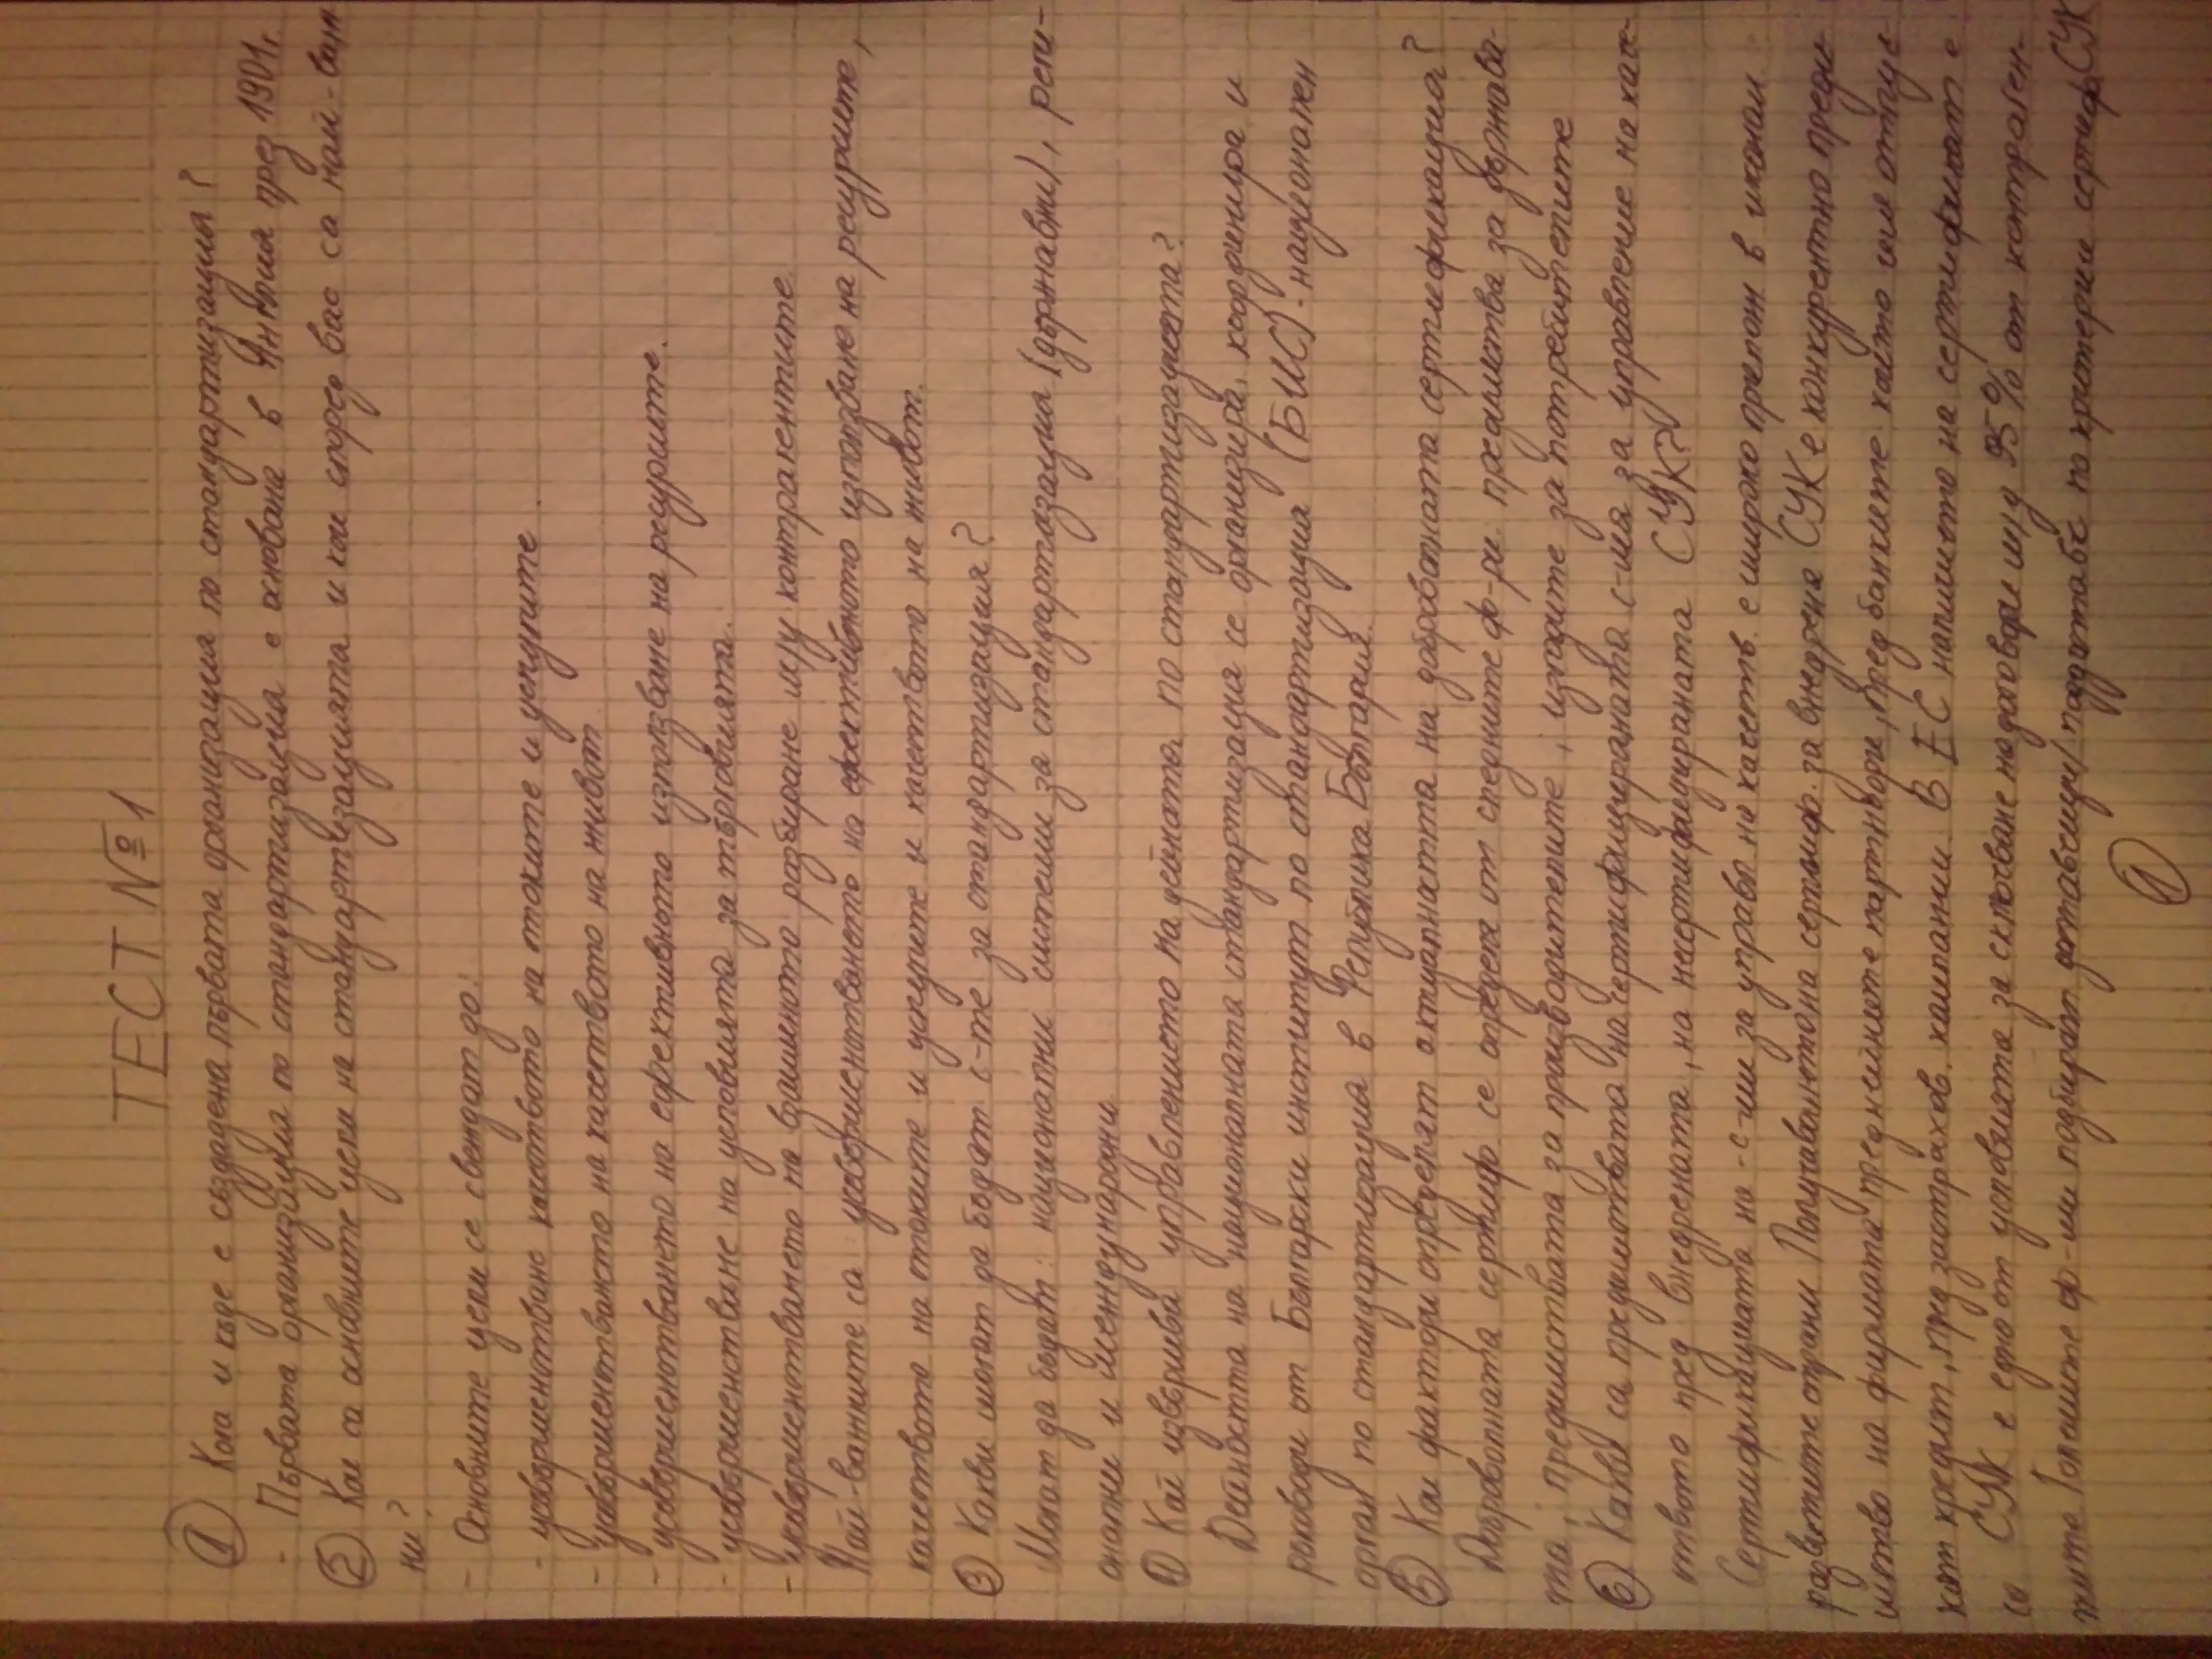 ТЕСТ №1
① Коя и къде е създадена първата организация по стандартизация?
- Първата организация по стандартизация е основана в Англия през 1901г.
② Кои са основните цели на стандартизацията и кои според вас са най-важ
ни?
- Основните цели се свеждат до:
- усъвършенстване качеството на стоките и услугите.
- усъвършенстването на качеството на живот
- усъвършенстването на ефективното използване на ресурсите.
- усъвършенстване на условията за търговията.
- усъвършенстването на взаимното разбиране м/у контрагентите.
Най-важните са: усъвършенстването на ефективното използване на ресурсите,
качеството на стоките и услугите и качеството на живот.
③ Какви могат да бъдат с-те за стандартизация?
Могат да бъдат: национални системи за стандартазация (държавни), реги-
онални и международни
④ Кой извършва управлението на дейността по стандартизацията?
Дейността на националната стандартизация се организира, координира и
ръководи от Български институт по стандартизация (БИС)- национален
орган по стандартизация в Република България.
⑤ Кои фактори определят актуалността на доброволната сертификация?
Доброволната сертиф се определя от следните ф-ри: предимства за държава-
та; предимствата за производителите; изгодите за потребителите
⑥ Какви са предимствата на сертифицираната с-ма за управление на каче-
ството пред внедрената, на несертифицираната СУК?
Сертификацията на с-ми за управл на качеств. е широко прилаган в икон.
развитите страни Получаването на сертиф. за внедрена СУК е конкурентно предим
ство на фирмата пред нейните партньори, пред банките като им отпус
кат кредит, пред застрахов. компании. В ЕС наличието на сертификат е
са СУК е едно от условията за сключване на договори м/у 95% от контраген-
тите Големите ф-ми подбират доставчици/поддоставчици по критерии сертиф СУК
①